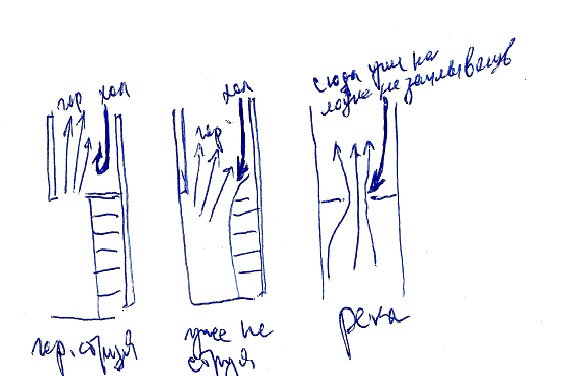 гор хол
хол
гор
сюда уже на
лодке не заплываешь
гор. струя
уже не
струя
река